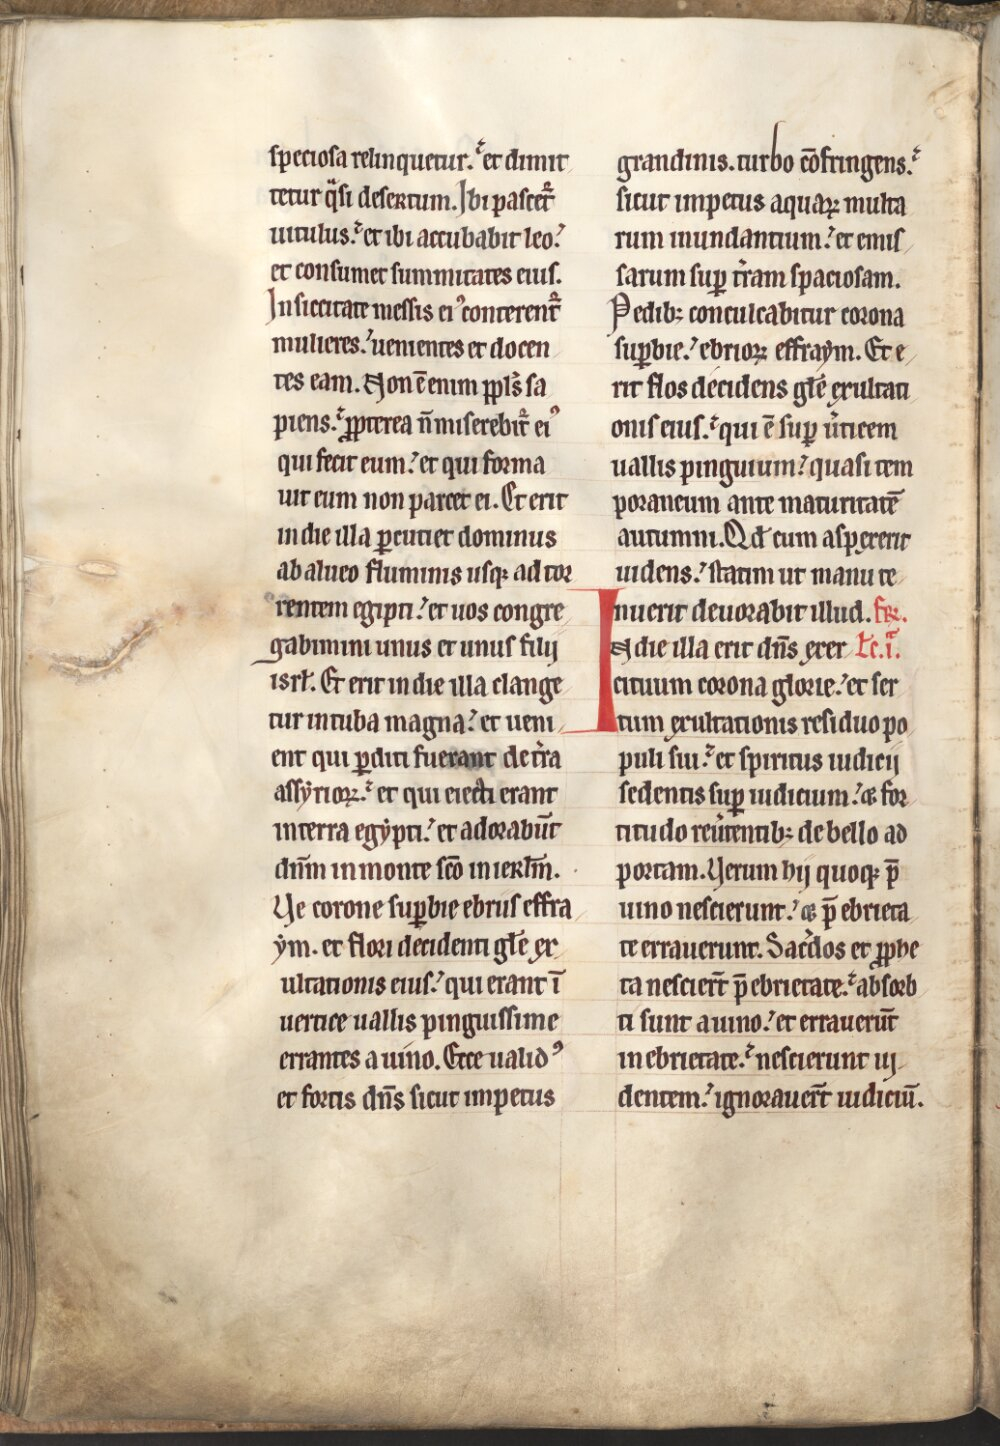 speciosa relinquetur. et dimit
tetur q̈si desertum. Ibi pascet᷑
uitulus. et ibi accubabit leo.
et consumet summitates eius.
In siccitate messis eiꝰ conterent᷑
mulieres. uenientes et docen
tes eam. Non ē enim ppl̄s sa
piens. ꝓpterea n̄ miserebit᷑ eiꝰ
qui fecit eum. et qui forma
uit eum non parcet ei. Et erit
in die illa ꝑcutiet dominus
ab alueo fluminis usqꝫ ad tor
rentem egipti. et uos congre
gabimini unus et unus filij
isrl̄. Et erit in die illa clange
tur in tuba magna. et ueni
ent qui ꝑditi fuerant de t̄ra
assyrioꝝ. et qui eiecti erant
in terra egypti. et adorabūt
dn̄m in monte sc̄o in ierl̄m.
Ue corone suꝑbie ebriis effra
ym. et flori decidenti gl̄e ex
ultationis eius. qui erant ī
uertice uallis pinguissime
errantes a uino. Ecce ualidꝰ
et fortis dn̄s sicut impetus
grandinis. turbo cōfringens.
sicut impetus aquaꝝ multa
rum inundantium. et emis
sarum suꝑ t̄ram spaciosam.
Pedibꝫ conculcabitur corona
suꝑbie. ebrioꝝ effraym. Et e
rit flos decidens gl̄e exultati
onis eius. qui ē suꝑ u̾ticem
uallis pinguium. quasi tem
poraneum ante maturitatē
autumni. Qd̄ cum aspexerit
uidens. statim ut manu te
nuerit deuorabit illud. fer.
In die illa erit dn̄s exer l̄c.i.
cituum corona glorie. et ser
tum exultationis residuo po
puli sui. et spiritus iudicij
sedentis suꝑ iudicium. et for
titudo reu̾tentibꝫ de bello ad
portam. Uerum hij quoqꝫ p̄
uino nescierunt. et p̄ ebrieta
te errauerunt. Sac̾dos et ꝓphe
ta nescier̄t p̄ ebrietate. absorb
ti sunt a uino. et errauerūt
in ebrietate. nescierunt ui
dentem. ignorauer̄t iudiciū.